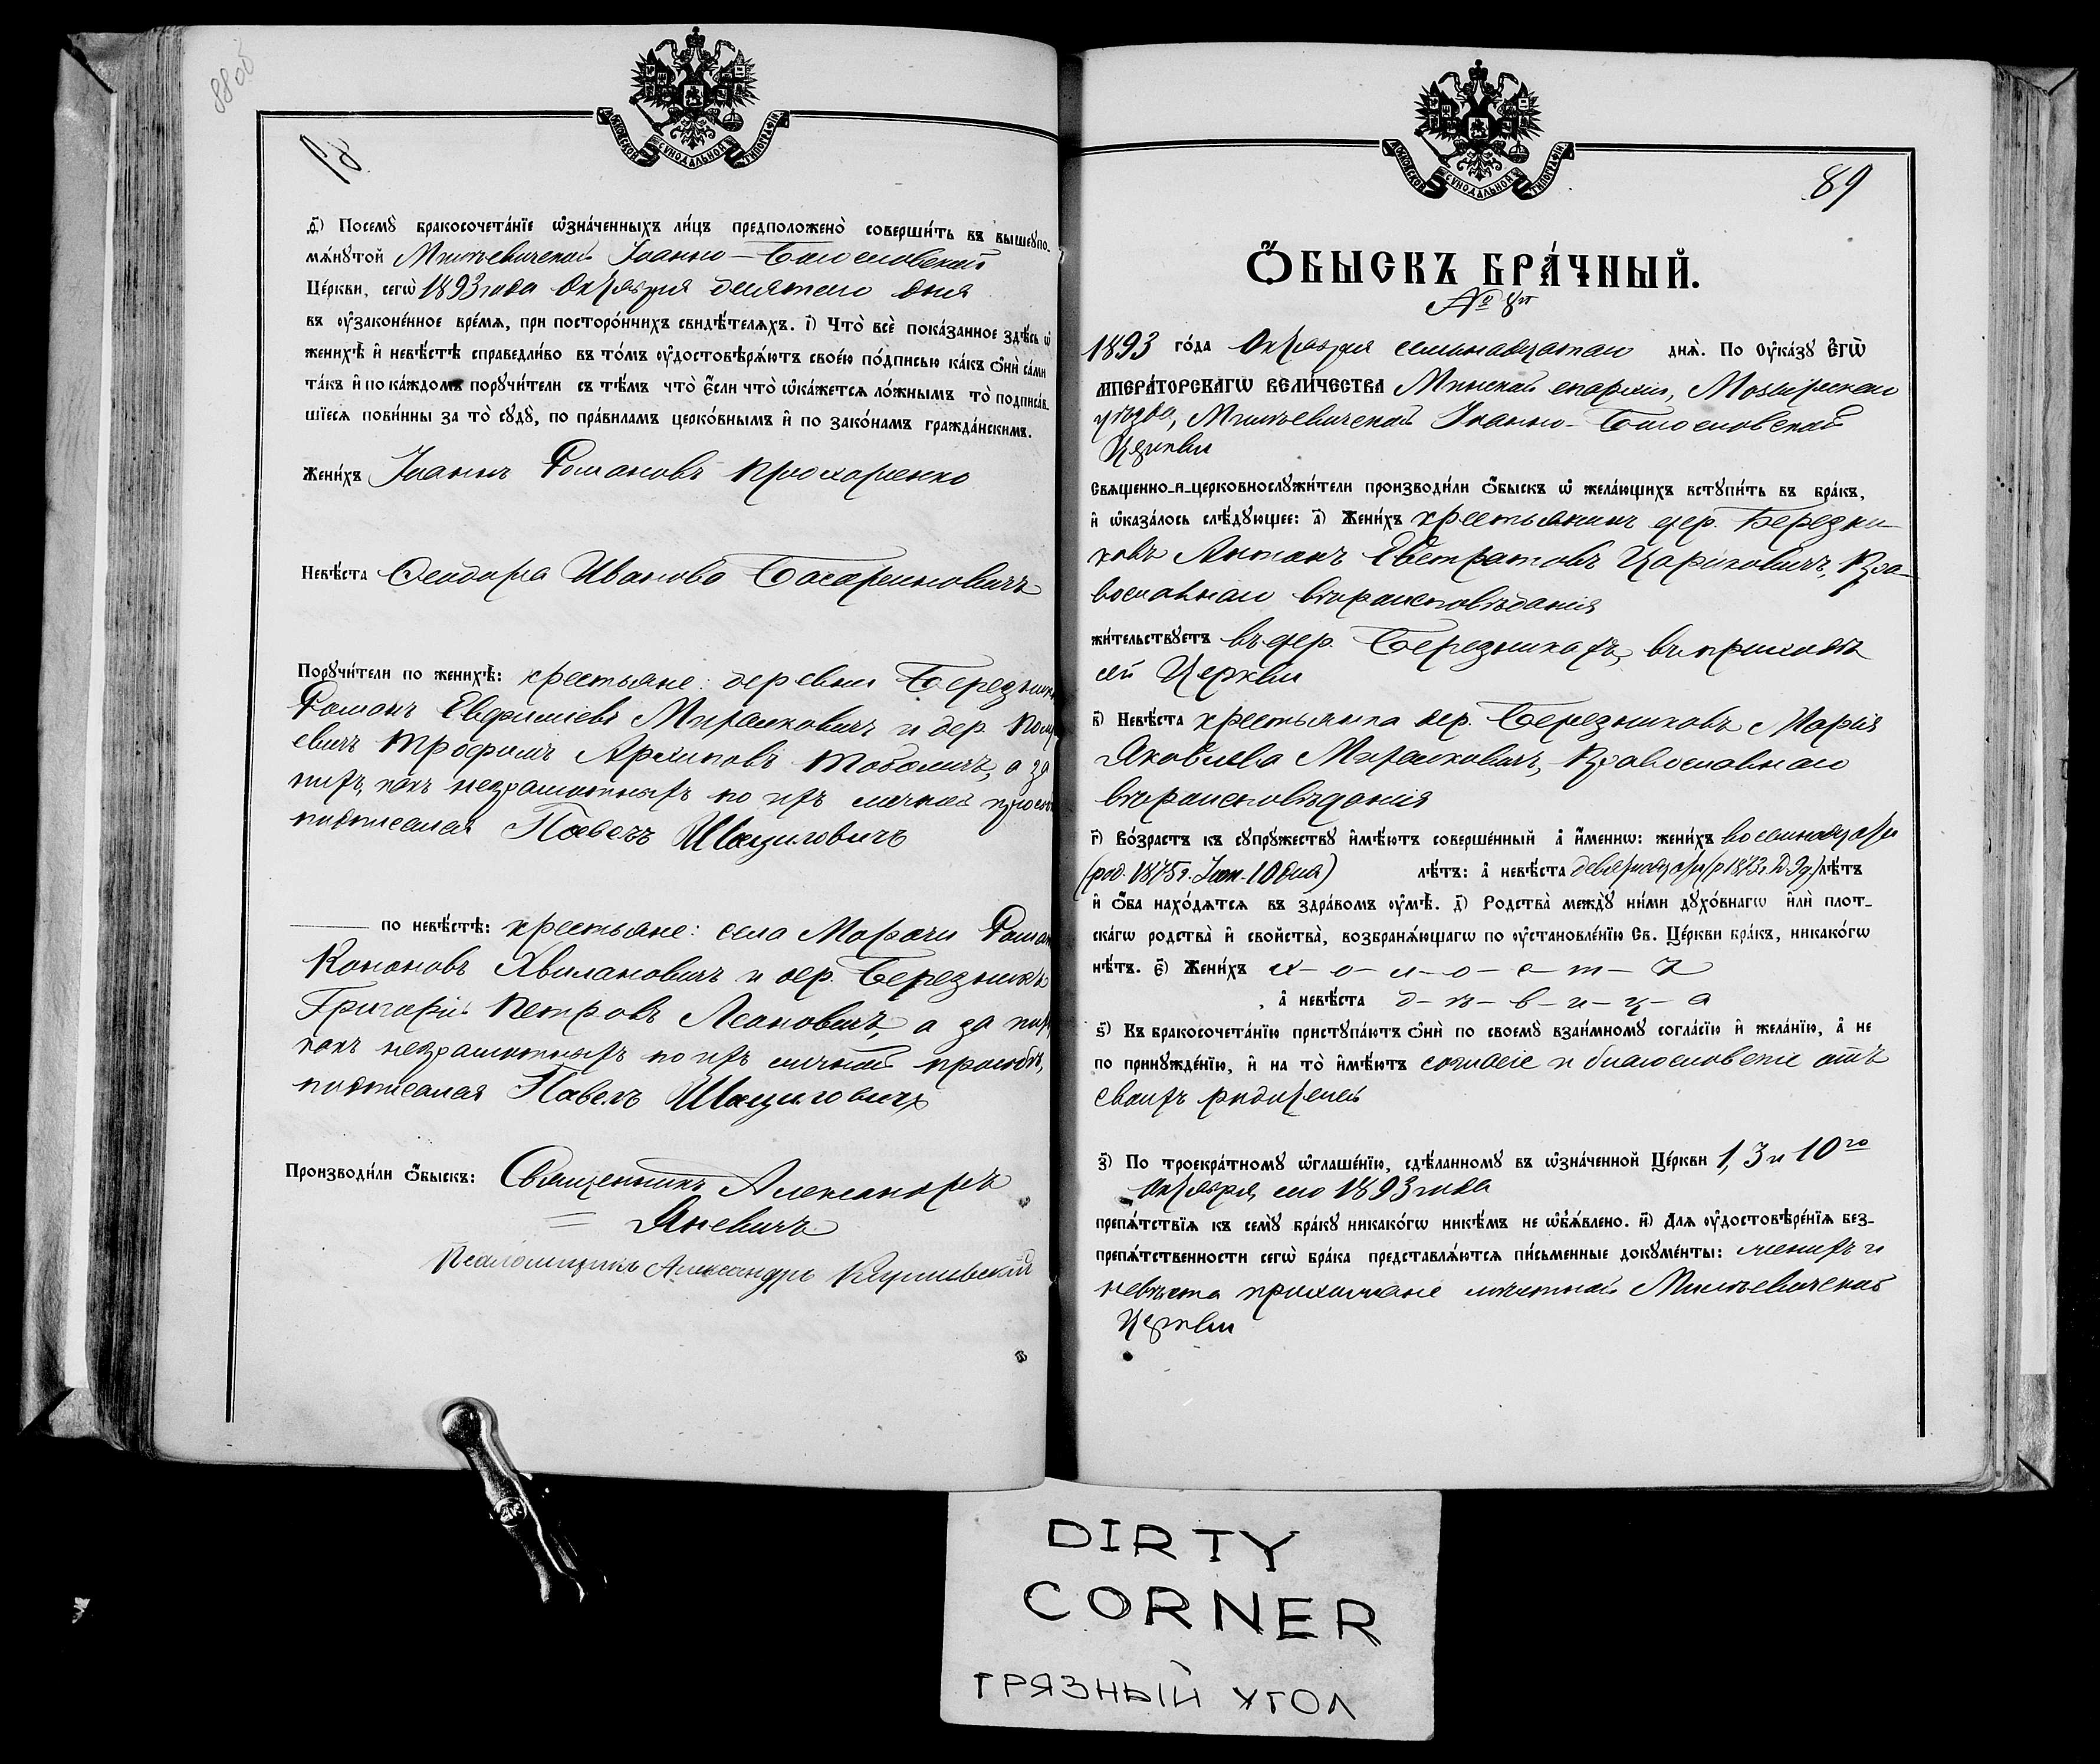 88об
МОСКОВСКОЙ СѴНОДАЛЬНОЙ ТИПОГРАФІИ
ѳ҃) Посемꙋ̀ бракосочета́нїе ѡ҆зна́ченныхъ ли́цъ предположено̀ соверши́ть въ вышеꙋпо-
мѧ́нꙋтой Мильевичской Іоанно-Богословской
Це́ркви, сегѡ̀ 1893 года Октября десятого дня
въ ᲂу҆законе́нное вре́мѧ, при посторо́ннихъ свидѣ́телѧхъ. і҃) Что̀ всѐ пока́занное здѣ́сь ѡ҆
женихѣ̀ и҆ невѣ́стѣ справедли́во въ то́мъ ᲂу҆достовѣрѧ́ютъ свое́ю по́дписью ка́къ ѻ҆нѝ са́ми
та́къ и҆ по ка́ждомъ порꙋчи́тели съ тѣ́мъ что̀ є҆́сли что̀ ѡ҆ка́жетсѧ ло́жнымъ то̀ подписа́в-
шїесѧ пови́нны за то̀ сꙋдꙋ̀, по пра́виламъ церко́внымъ и҆ по зако́намъ гражда́нскимъ.
Жени́хъ Іоаннъ Романовъ Прохоренко
Невѣ́ста Ѳеодора Иванова
Порꙋчи́тели по женихѣ̀: крестьяне: деревни Березник
Романъ Евфимiевъ Миранковичъ и дер. Ком
евичъ Трофимъ Архиповъ Тоболичъ, а за
нихъ, какъ неграмотныхъ по ихъ личной просьб
подписался Павелъ Шацилович
по невѣ́стѣ: крестьяне: села Морочи Роман
Кононовъ Хвиланович и дер. Березников
Григорій Петровъ Леановичъ, а за них
какъ неграмотныхъ по ихъ личной просьбѣ,
подписался Павелъ Шацилович
Производи́ли ѻ҆́быскъ: Священникъ Александръ
Яневичъ
Псаломщикъ Александръ
МОСКОВСКОЙ СѴНОДАЛЬНОЙ ТИПОГРАФІИ
89
Ѻ҆́БЫСКЪ БРА́ЧНЫЙ.
№ 8й
1893 го́да Октября семнадцатаго днѧ̀. По ᲂу҆ка́зꙋ Є҆гѡ̀
И҆МПЕРА́ТОРСКАГѠ ВЕЛИ́ЧЕСТВА Минской епархіи, Мозырского
уѣзда, Мильевичской Іоанно-Богословской
Церкви
Свѧще́нно-и-церковнослꙋжи́тели производи́ли ѻ҆́быскъ ѡ҆ жела́ющихъ встꙋпи́ть въ бра́къ,
и҆ ѡ҆каза́лось слѣ́дꙋющее: а҃) Жени́хъ крестьянинъ дер. Березни-
ковъ Антонъ Евстратовъ Цариковичъ, Пра-
вославнаго вѣроисповѣданія
жи́тельствꙋетъ въ дер. Березникахъ, въ приходѣ
сей Церкви
в҃) Невѣ́ста крестьянка дер. Березниковъ Марія
Яковлева Миранковичъ, Православнаго
вѣроисповѣданія
г҃) Во́зрастъ къ сꙋпрꙋ́жествꙋ и҆мѣ́ютъ соверше́нный а҆ и҆́менно: жени́хъ восемнадцати
(род. 1875 г. Іюн. 10 дня) лѣ́тъ: а҆ невѣ́ста девятнадцати лѣ́тъ
и҆ ѻ҆́ба нахо́дѧтсѧ въ здра́вомъ ᲂу҆мѣ̀. д҃) Родства̀ междꙋ̀ ни́ми дꙋхо́внагѡ и҆лѝ плот-
ска́гѡ родства̀ и҆ свойства̀, возбранѧ́ющагѡ по ᲂу҆становле́нїю Св. Це́ркви бра́къ, никако́гѡ
нѣ́тъ. є҃) Жени́хъ х-о-л-о-с-т-ъ
, а҆ невѣ́ста д-ѣ-в-и-ц-а
ѕ҃) Къ бракосочета́нїю пристꙋпа́ютъ ѻ҆нѝ по своемꙋ̀ взаи́мномꙋ согла́сїю и҆ жела́нїю, а҆ не
по принꙋжде́нїю, и҆ на то̀ и҆мѣ́ютъ согласіе и благословеніе отъ
своихъ родителей
з҃) По троекра́тномꙋ ѡ҆глаше́нїю, сдѣ́ланномꙋ въ ѡ҆зна́ченной Це́ркви 1, 3 и 10го
Октября сего 1893 года
препѧ́тствїѧ къ семꙋ̀ бра́кꙋ никако́гѡ никѣ́мъ не ѡ҆б̾ѧ́влено. и҃) Длѧ ᲂу҆достовѣре́нїѧ без-
препѧ́тственности сегѡ̀ бра́ка представлѧ́ютсѧ пи́сьменные докꙋме́нты: женихъ и
невѣста прихожане мѣстной Мильевичской
Церкви
DIRTY
CORNER
ГРЯЗНЫЙ УГОЛ